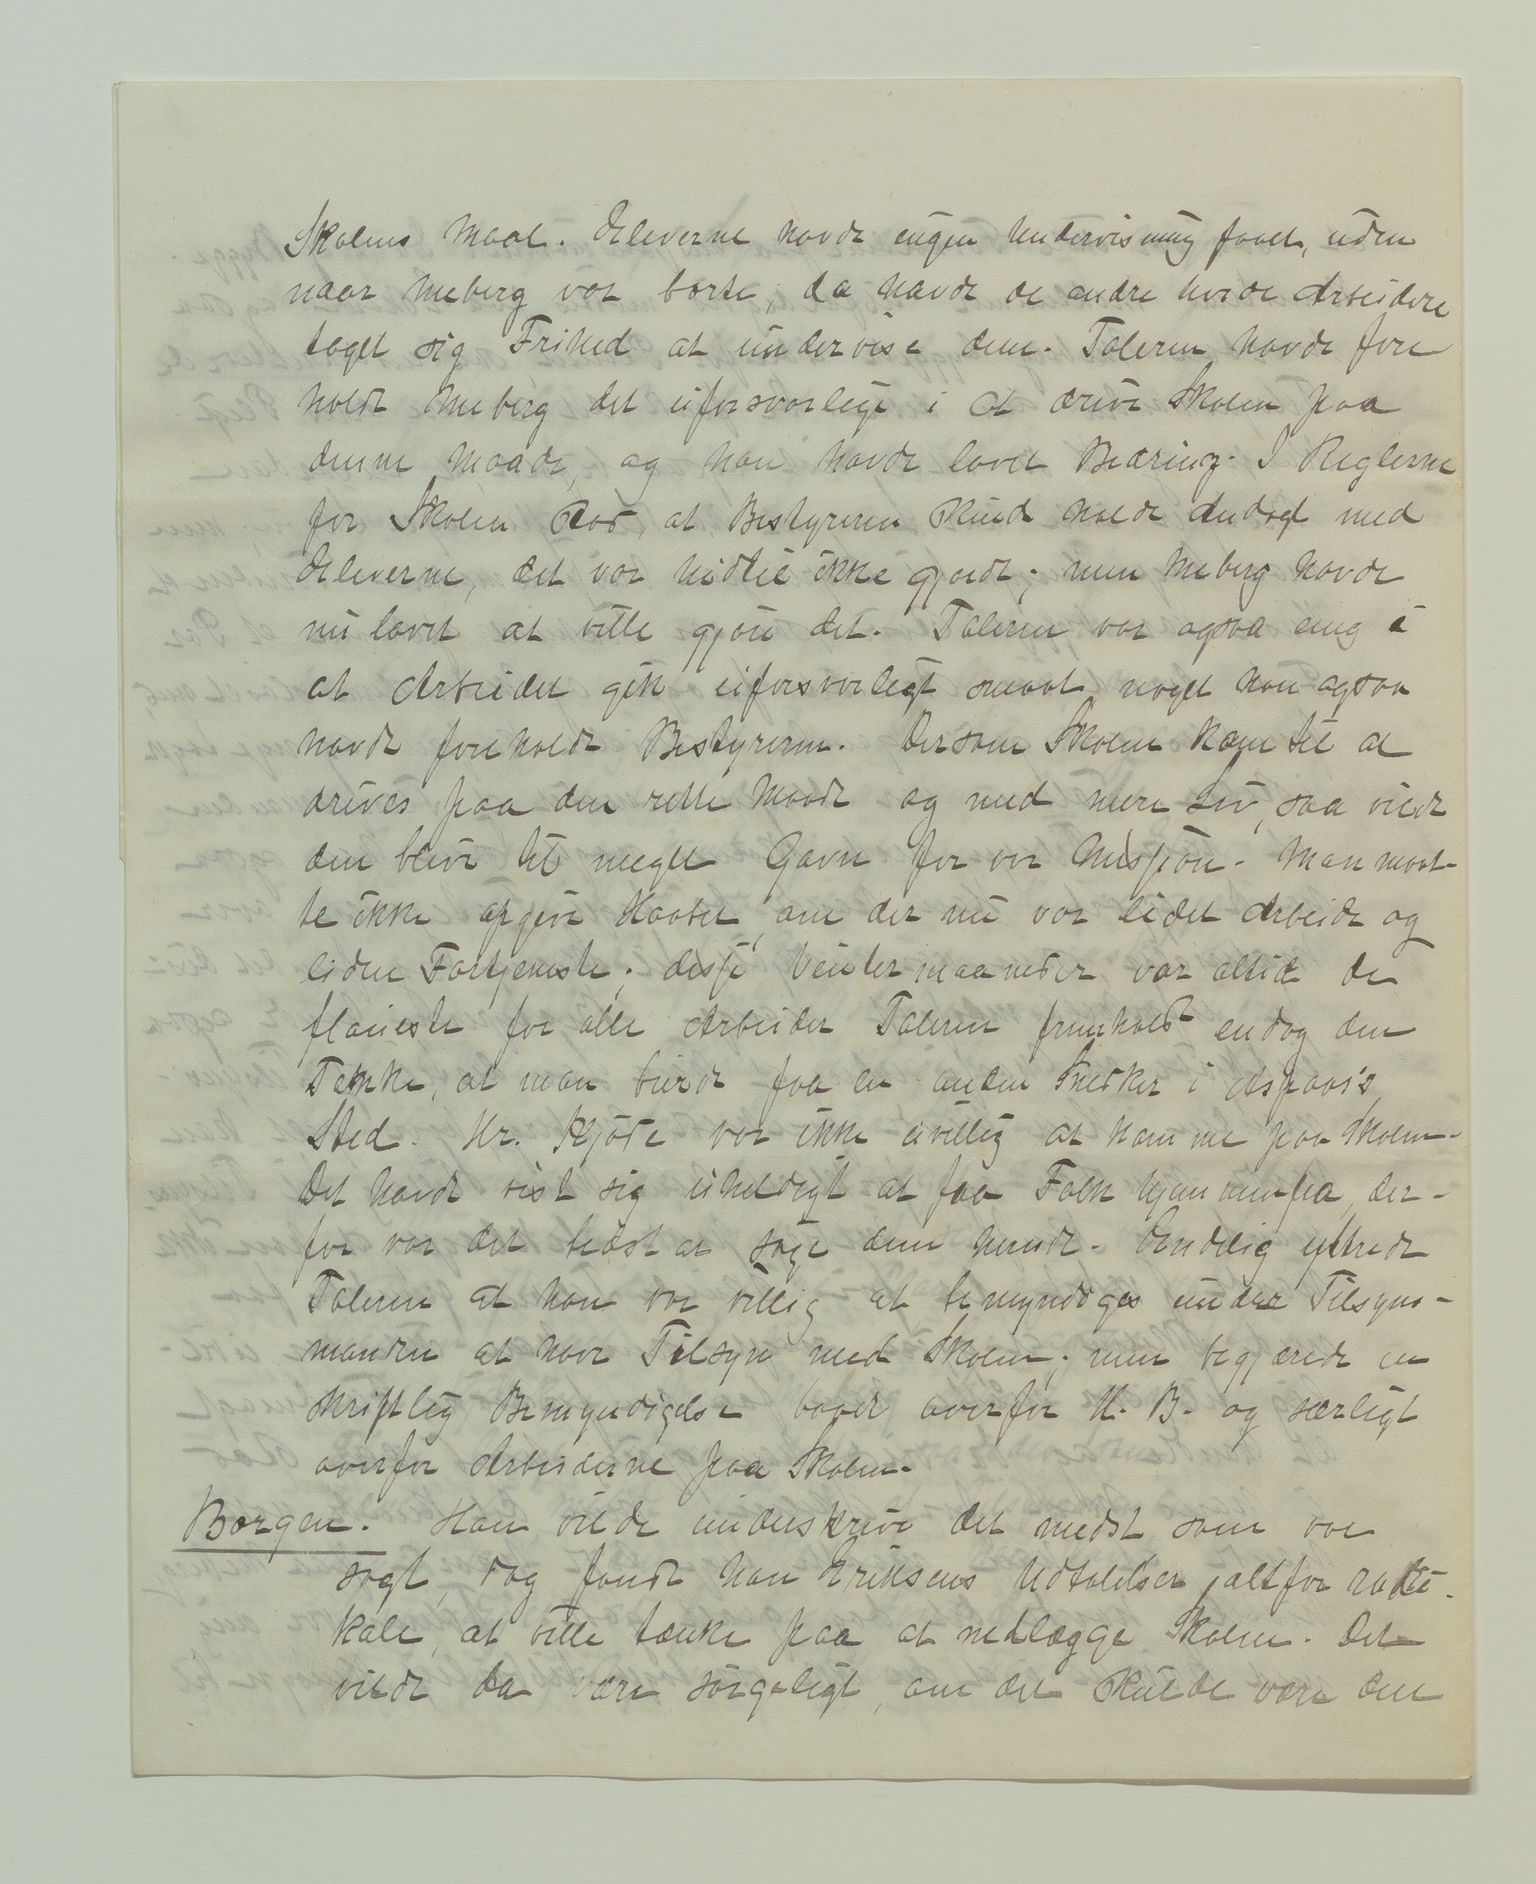 Skolens Maal. Eleverne havde ingen Undervisning faaet, uden
naar Meberg var borte, da havde de andre hvide Arbeidere
taget sig Frihed at undervise dem. Taleren havde fore
holdt Meberg det uforsvarlige i at drive Skolen paa
denne Maade, og han havde lovet Bedring. I Reglerne
for Skolen stod, at Bestyreren skulde holde Andagt med
Eleverne, det var hidtil ikke gjordt; men Meberg havde
nu lovet at ville gjøre det. Taleren var ogsaa enig i
at Arbeidet gik uforsvarligt smaat, noget han ogsaa
havde foreholdt Bestyreren. Dersom Skolen kom til at
drives paa den rette Maade og med mere Liv, saa vilde
den blive til meget Gavn for vor Mission. Man maat-
te ikke opgive Haabet, om der nu var lidet Arbeide og
liden Fortjeneste; disse Vintermaaneder var altid de
flaueste for alle Arbeider. Taleren fremholdt endog den
Tanke, at man burde faa en anden Snedker i Aspaas's
Sted. Hr. Kjøde var ikke uvillig at komme paa Skolen.
Det havde vist sig uheldigt at faa Folk hjemmenfra, der-
for var det bedst at søge dem herude. Endelig yttrede
Taleren at han var villig at bemyndiges under Tilsyns-
manden at have Tilsyn med Skolen; men begjærede en
skriftlig Bemyndigelse baade overfor H. B. og særligt
overfor Arbeiderne paa Skolen.
Borgen. Han vilde underskrive det medst som var
sagt, dog fandt han Eriksens Udtalelser altfor radi-
kale, at ville tænke paa at nedlægge Skolen. Det
vilde da være sørgeligt, om det skulde være den